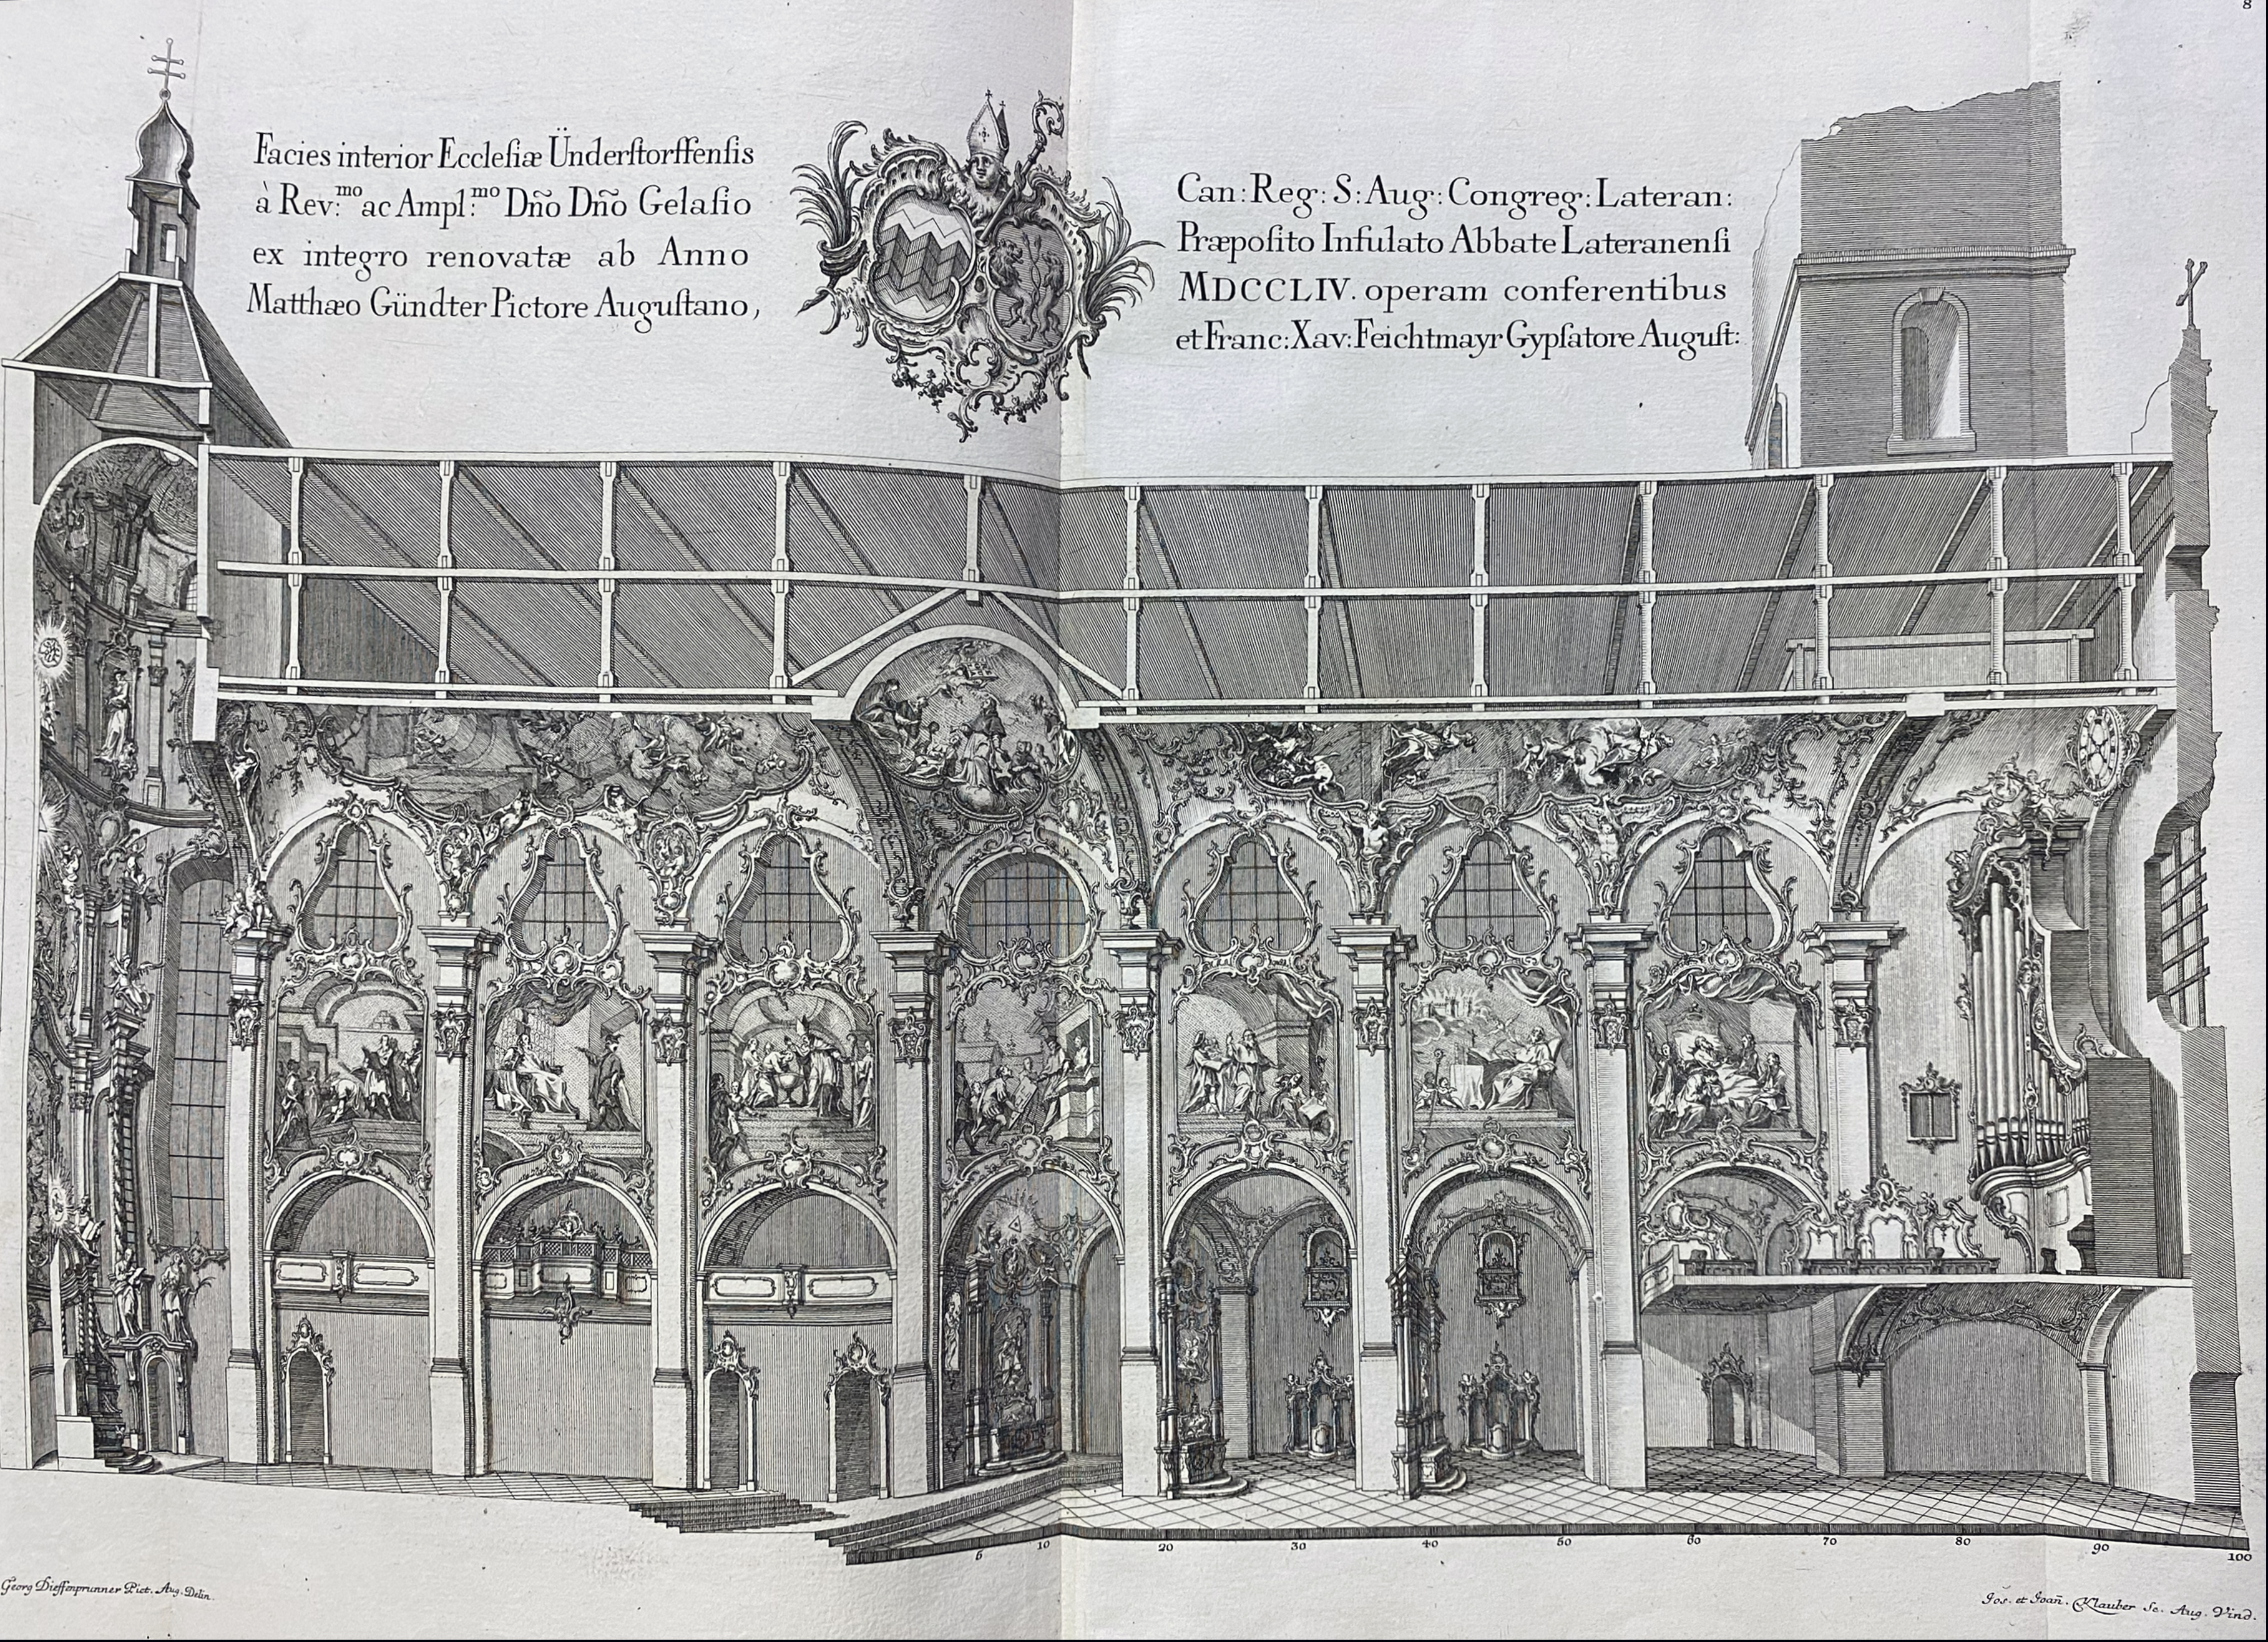 8
Facies interior Ecclesiæ Ünderstorffensis
à Rev:mo ac Ampl:mo Dño Dño Gelasio
ex integro renovatæ ab Anno
Matthæo Gündter Pictore Augustano,
Can: Reg: S: Aug: Congreg: Lateran:
Præposito Infulato Abbate Lateranensi
MDCCLIV. operam conferentibus
et Franc: Xav: Feichtmayr Gypsatore August:
5 10 20 30 40 50 60 70 80 90 100
Georg Dieffenprunner Pict. Aug. Delin.
Jos. et Joañ. Klauber Sc. Aug. Vind.